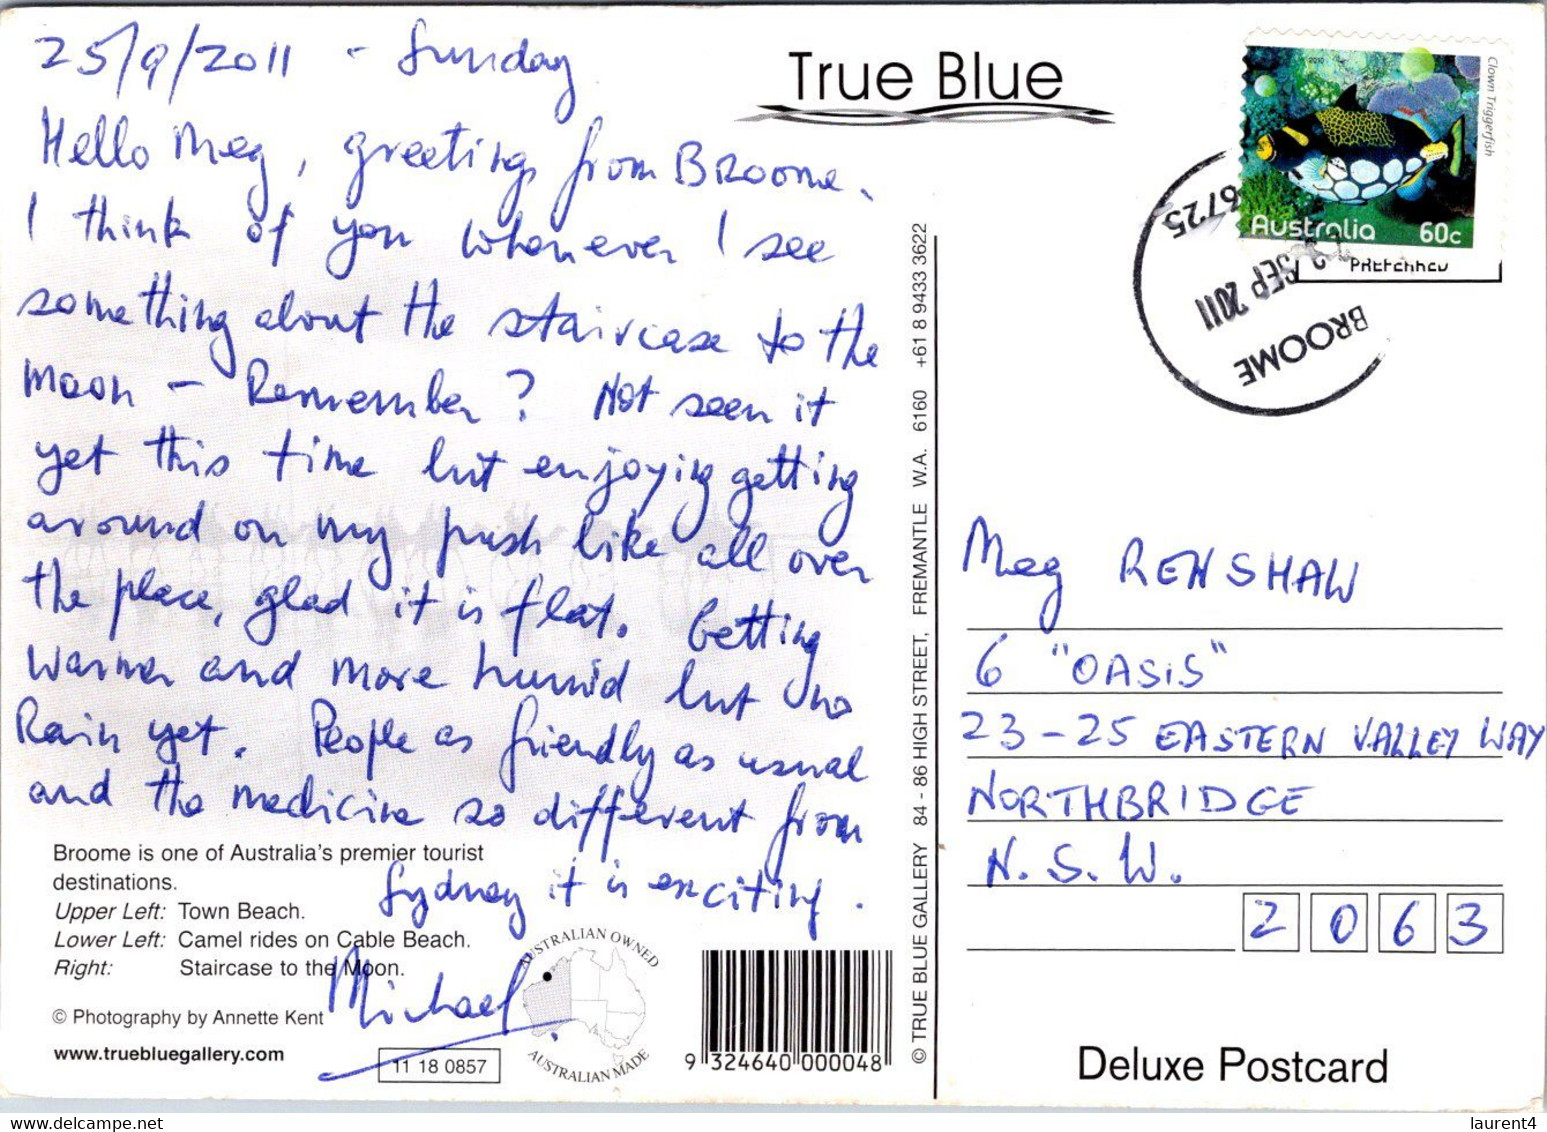 25/9/2011 - Sunday
Hello Meg, greetings from BRoome.
I think of you whenever I see
something about the staircase to the
moon - Remember? Not seen it
yet this time but enjoying getting
around on my push bike all over
the place, glad it is flat. Getting
warmer and more humid but no
Rain yet. People as friendly as usual
and the medicine so different from
Sydney it is exciting.
Michael
Broome is one of Australia's premier tourist
destinations.
Upper Left: Town Beach.
Lower Left: Camel rides on Cable Beach.
Right: Staircase to the Moon.
© Photography by Annette Kent
www.truebluegallery.com
11 18 0857
AUSTRALIAN OWNED
AUSTRALIAN MADE
9 324640 000048
© TRUE BLUE GALLERY 84 - 86 HIGH STREET, FREMANTLE W.A. 6160 +61 8 9433 3622
True Blue
Clown Triggerfish
2010
Australia 60c
PREFERRED
6725
SEP 2011
BROOME
Meg RENSHAW
6 "OASIS"
23-25 EASTERN VALLEY WAY
NORTHBRIDGE
N.S.W.
2063
Deluxe Postcard
www.delcampe.net
laurent4